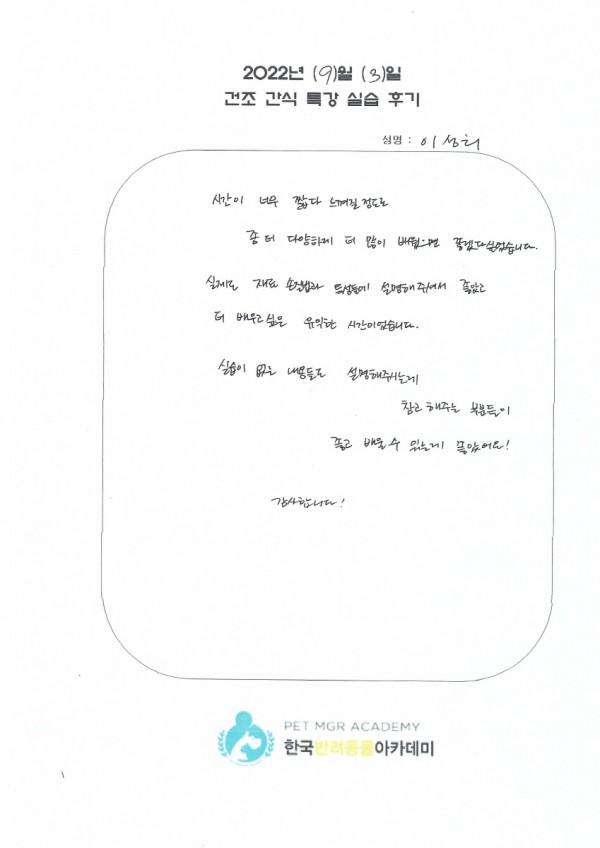 2022년 (9)월 (3)일
건조 간식 특강 실습 후기
성명 : 이성희
시간이 너무 짧다 느껴질정도로
좀 더 다양하게 더 많이 배웠으면 좋겠다싶었습니다.
실제로 재료 손질법과 특성들에 설명해주셔서 좋았고
더 배우고 싶은 유익한 시간이었습니다.
실습이 없는 내용들도 설명해주시는게
참고 해주는 부분들이
좋고 배울 수 있는게 좋았어요!
감사합니다!
PET MGR ACADEMY
한국반려동물아카데미